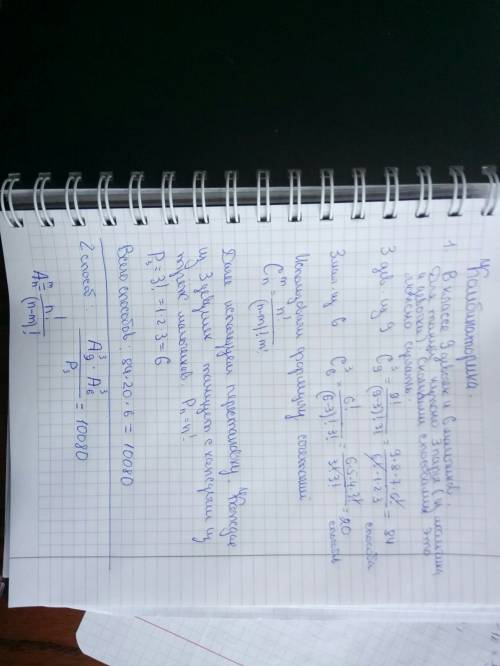 Комбинаторика.
1. В классе 9 девочек и 6 мальчиков.
Для танца нужно 3 пары (1 мальчик
и 1 девочка). сколькими способами это
можно сделать
3 дев из 9 C₉³ = 9! / (9-3)! 3! = 9·8·7·6! / 6!·1·2·3 = 84 способа
3 мал. из 6 C₆³ = 6! / (6-3)! 3! = 6·5·4·3! / 3! 3! = 20 способов
Используем формулу сочетаний
Cₙᵐ = n! / (n-m)! m!
Далее используем перестановку. Каждые
из 3 девушек танцуют с каждым из
троих мальчиков Pₙ = n!
P₃ = 3! = 1·2·3 = 6
Всего способов: 84·20·6 = 10080
2 способ: A₉³ · A₆³ / P₃ = 10080
Aₙᵐ = n! / (n-m)!